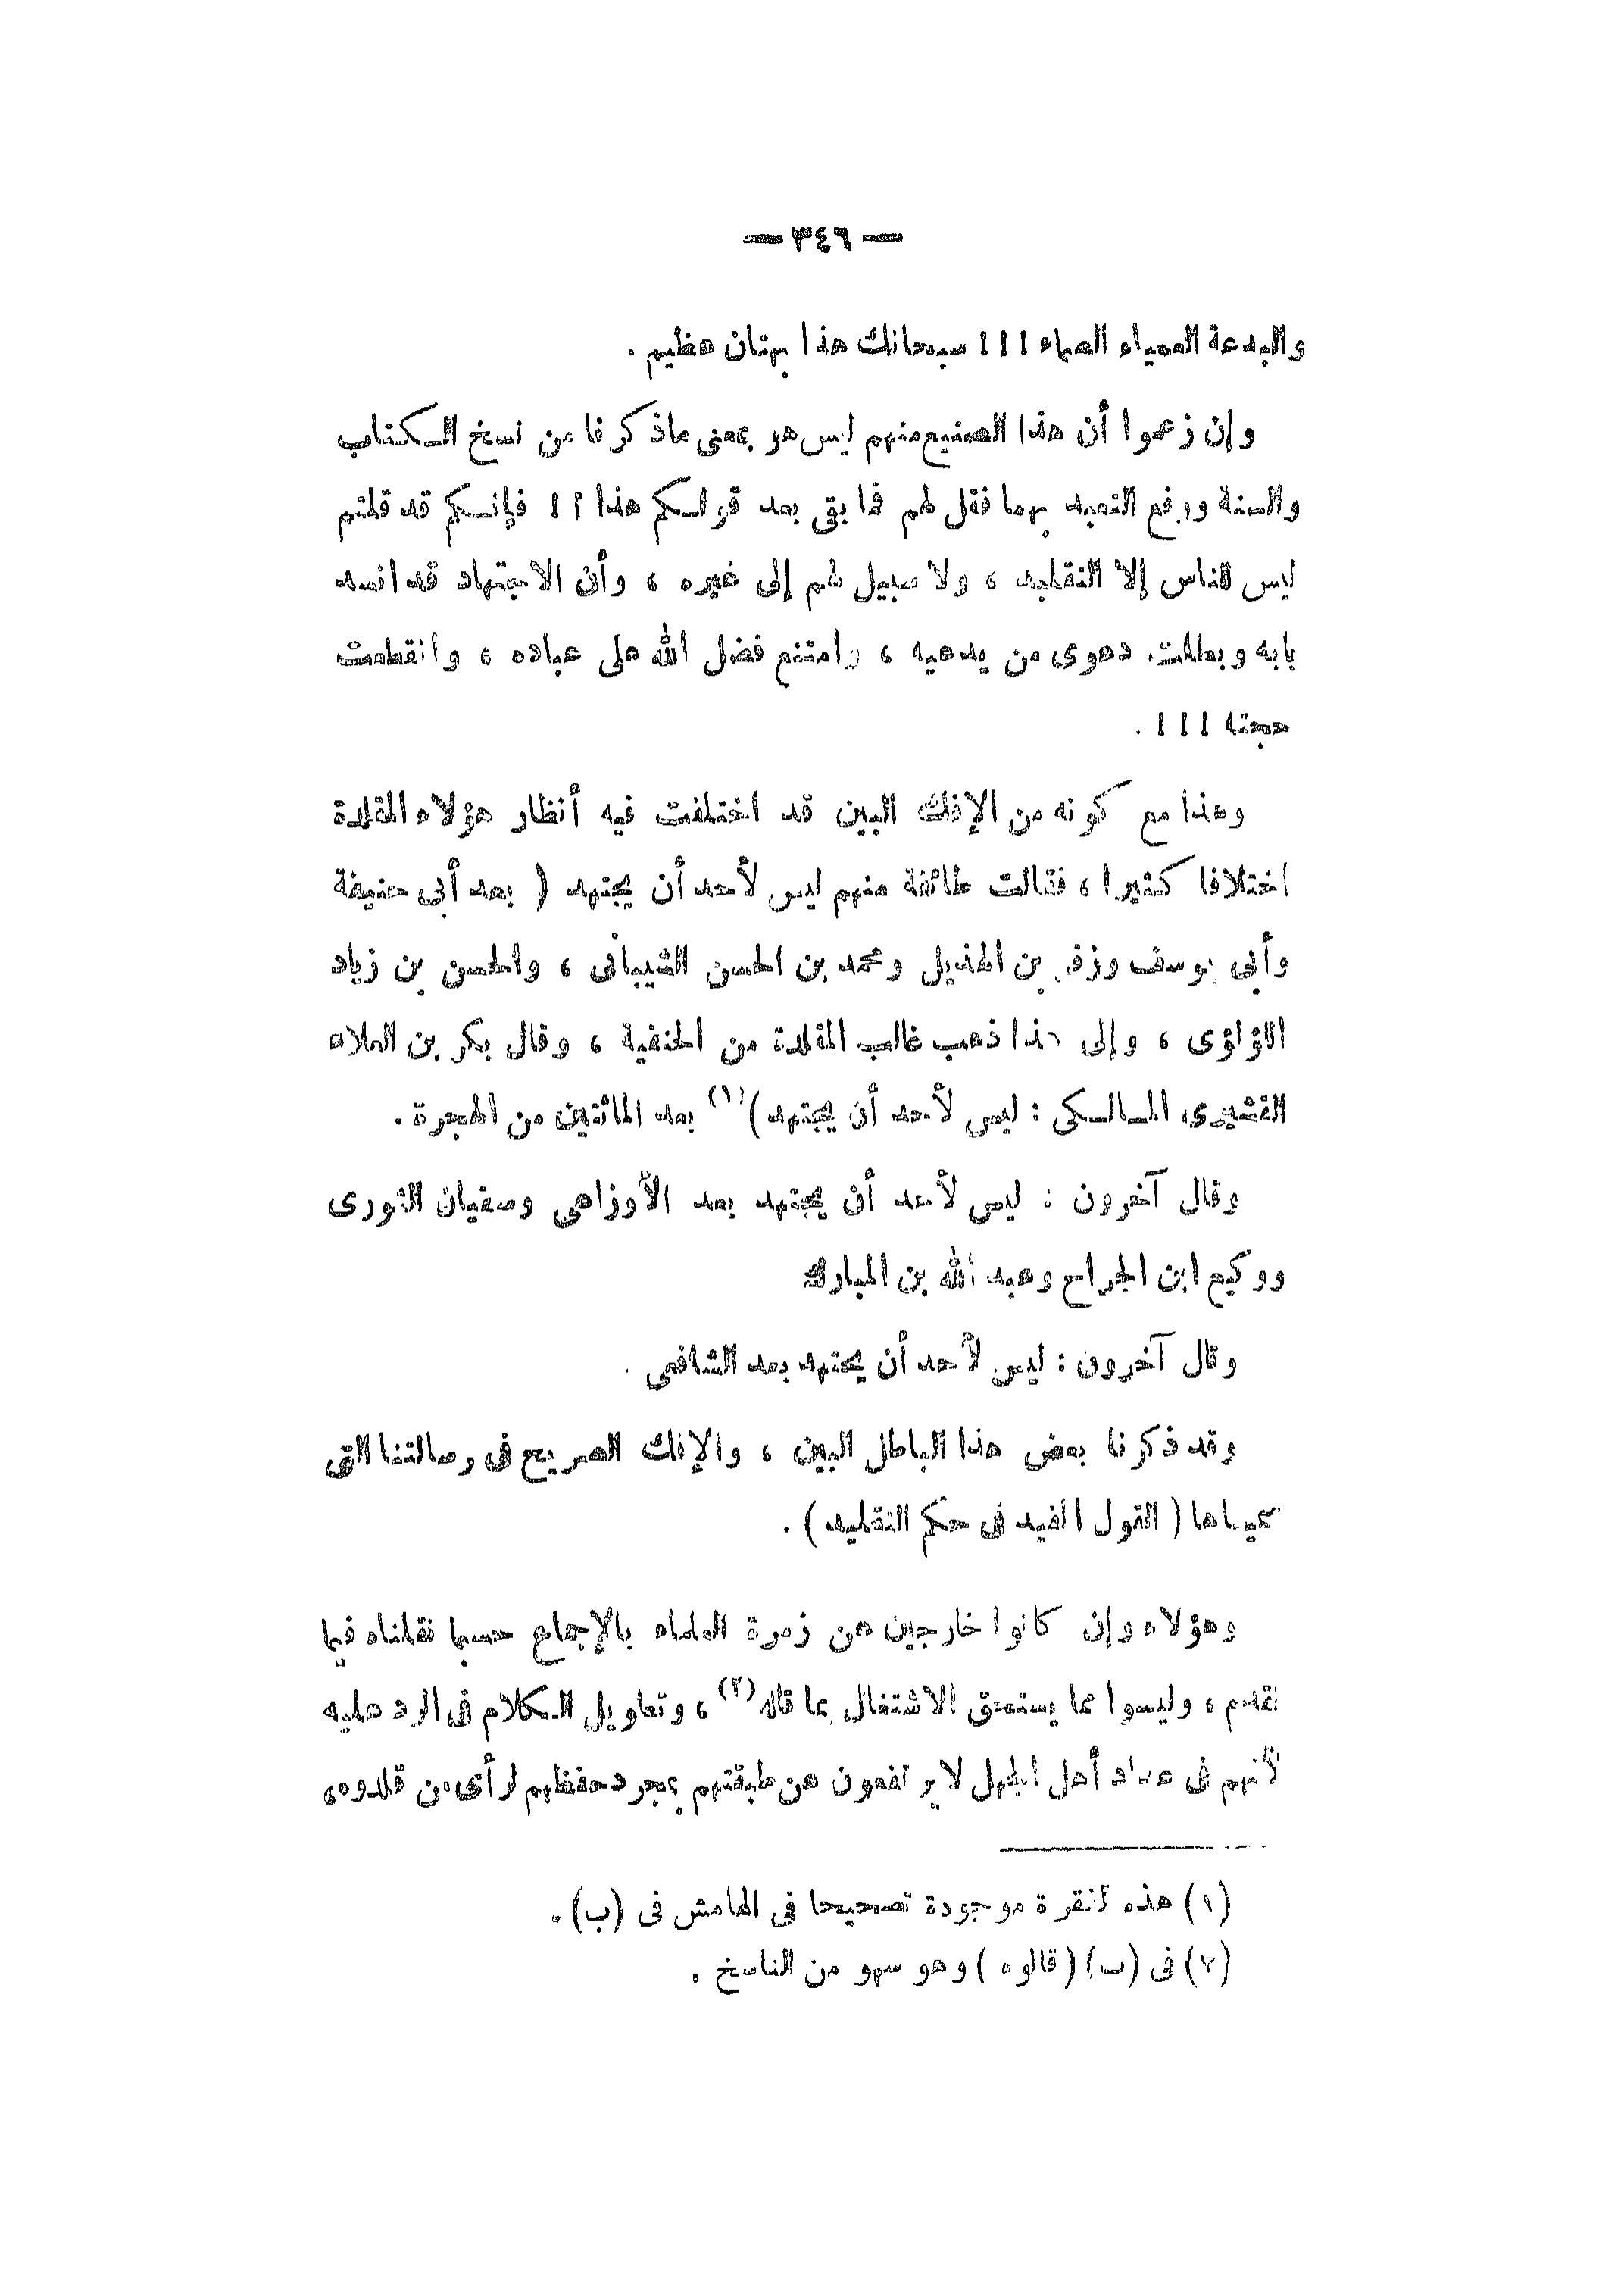 — ٣٤٦ —
والبدعة العمياء الصماء ! ! ! سبحانك هذا بهتان عظيم .
وإن زعموا أن هذا الصنيع منهم ليس هو بمعنى ماذكرنا من نسخ الكتاب
والسنة ورفع التعبد بهما فقل لهم فما بقى بعد قولكم هذا ؟ ! فإنكم قد قلتم
ليس للناس إلا التقليد ، ولا سبيل لهم إلى غيره ، وأن الاجتهاد قد انسد
بابه وبطلت دعوى من يدعيه ، وامتنع فضل الله على عباده ، وانقطعت
حجته ! ! ! .
وهذا مع كونه من الإفك البين قد اختلفت فيه أنظار هؤلاء المقلدة
اختلافا كثيرا ، فقالت طائفة منهم ليس لأحد أن يجتهد ( بعد أبى حنيفة
وأبى يوسف وزفر بن الهذيل ومحمد بن الحسن الشيبانى ، والحسن بن زياد
اللؤلؤى ، وإلى هذا ذهب غالب المقلدة من الحنفية ، وقال بكر بن العلاء
القشيرى المالكى : ليس لأحد أن يجتهد )(١) بعد المائتين من الهجرة .
وقال آخرون : ليس لأحد أن يجتهد بعد الأوزاعى وسفيان الثورى
ووكيع ابن الجراح وعبد الله بن المبارك
وقال آخرون : ليس لأحد أن يجتهد بعد الشافعى .
وقد ذكرنا بعض هذا الباطل البين ، والإفك الصريح فى رسالتنا التى
سميناها ( القول المفيد فى حكم التقليد ) .
وهؤلاء وإن كانوا خارجين عن زمرة العلماء بالإجماع حسبما نقلناه فيما
تقدم ، وليسوا مما يستحق الاشتغال بما قاله(٢) ، وتطويل الكلام فى الرد عليه
لأنهم فى عداد أهل الجهل لا يرتفعون عن طبقتهم بمجرد حفظهم لرأى من قلدوه،
(١) هذه الفقرة موجودة تصحيحا فى الهامش فى (ب) .
(٢) فى (ب) (قالوه ) وهو سهو من الناسخ .